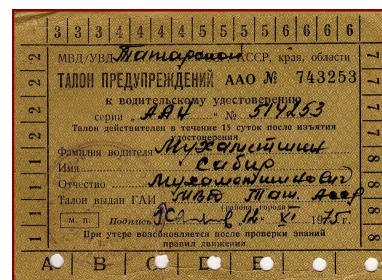 3 3 3 3 4 4 4 5 5 5 6 6 6
МВД/УВД Татарской АССР, края, области
ТАЛОН ПРЕДУПРЕЖДЕНИЙ ААО № 743253
к водительскому удостоверению
серии „ААЧ" № 514253
Талон действителен в течение 15 суток после изъятия
удостоверения
Фамилия водителя Мухаметшин
Имя Сабир
Отчество Мухаметшинович
Талон выдан ГАИ МВД Тат. Асср
(района, города)
м. п. Подпись 12. XI 1975 г.
При утере возобновляется после проверки знаний
правил движения
2 2 2 2 1 1 1 1
7 7 7 8 8 8
A B C D E